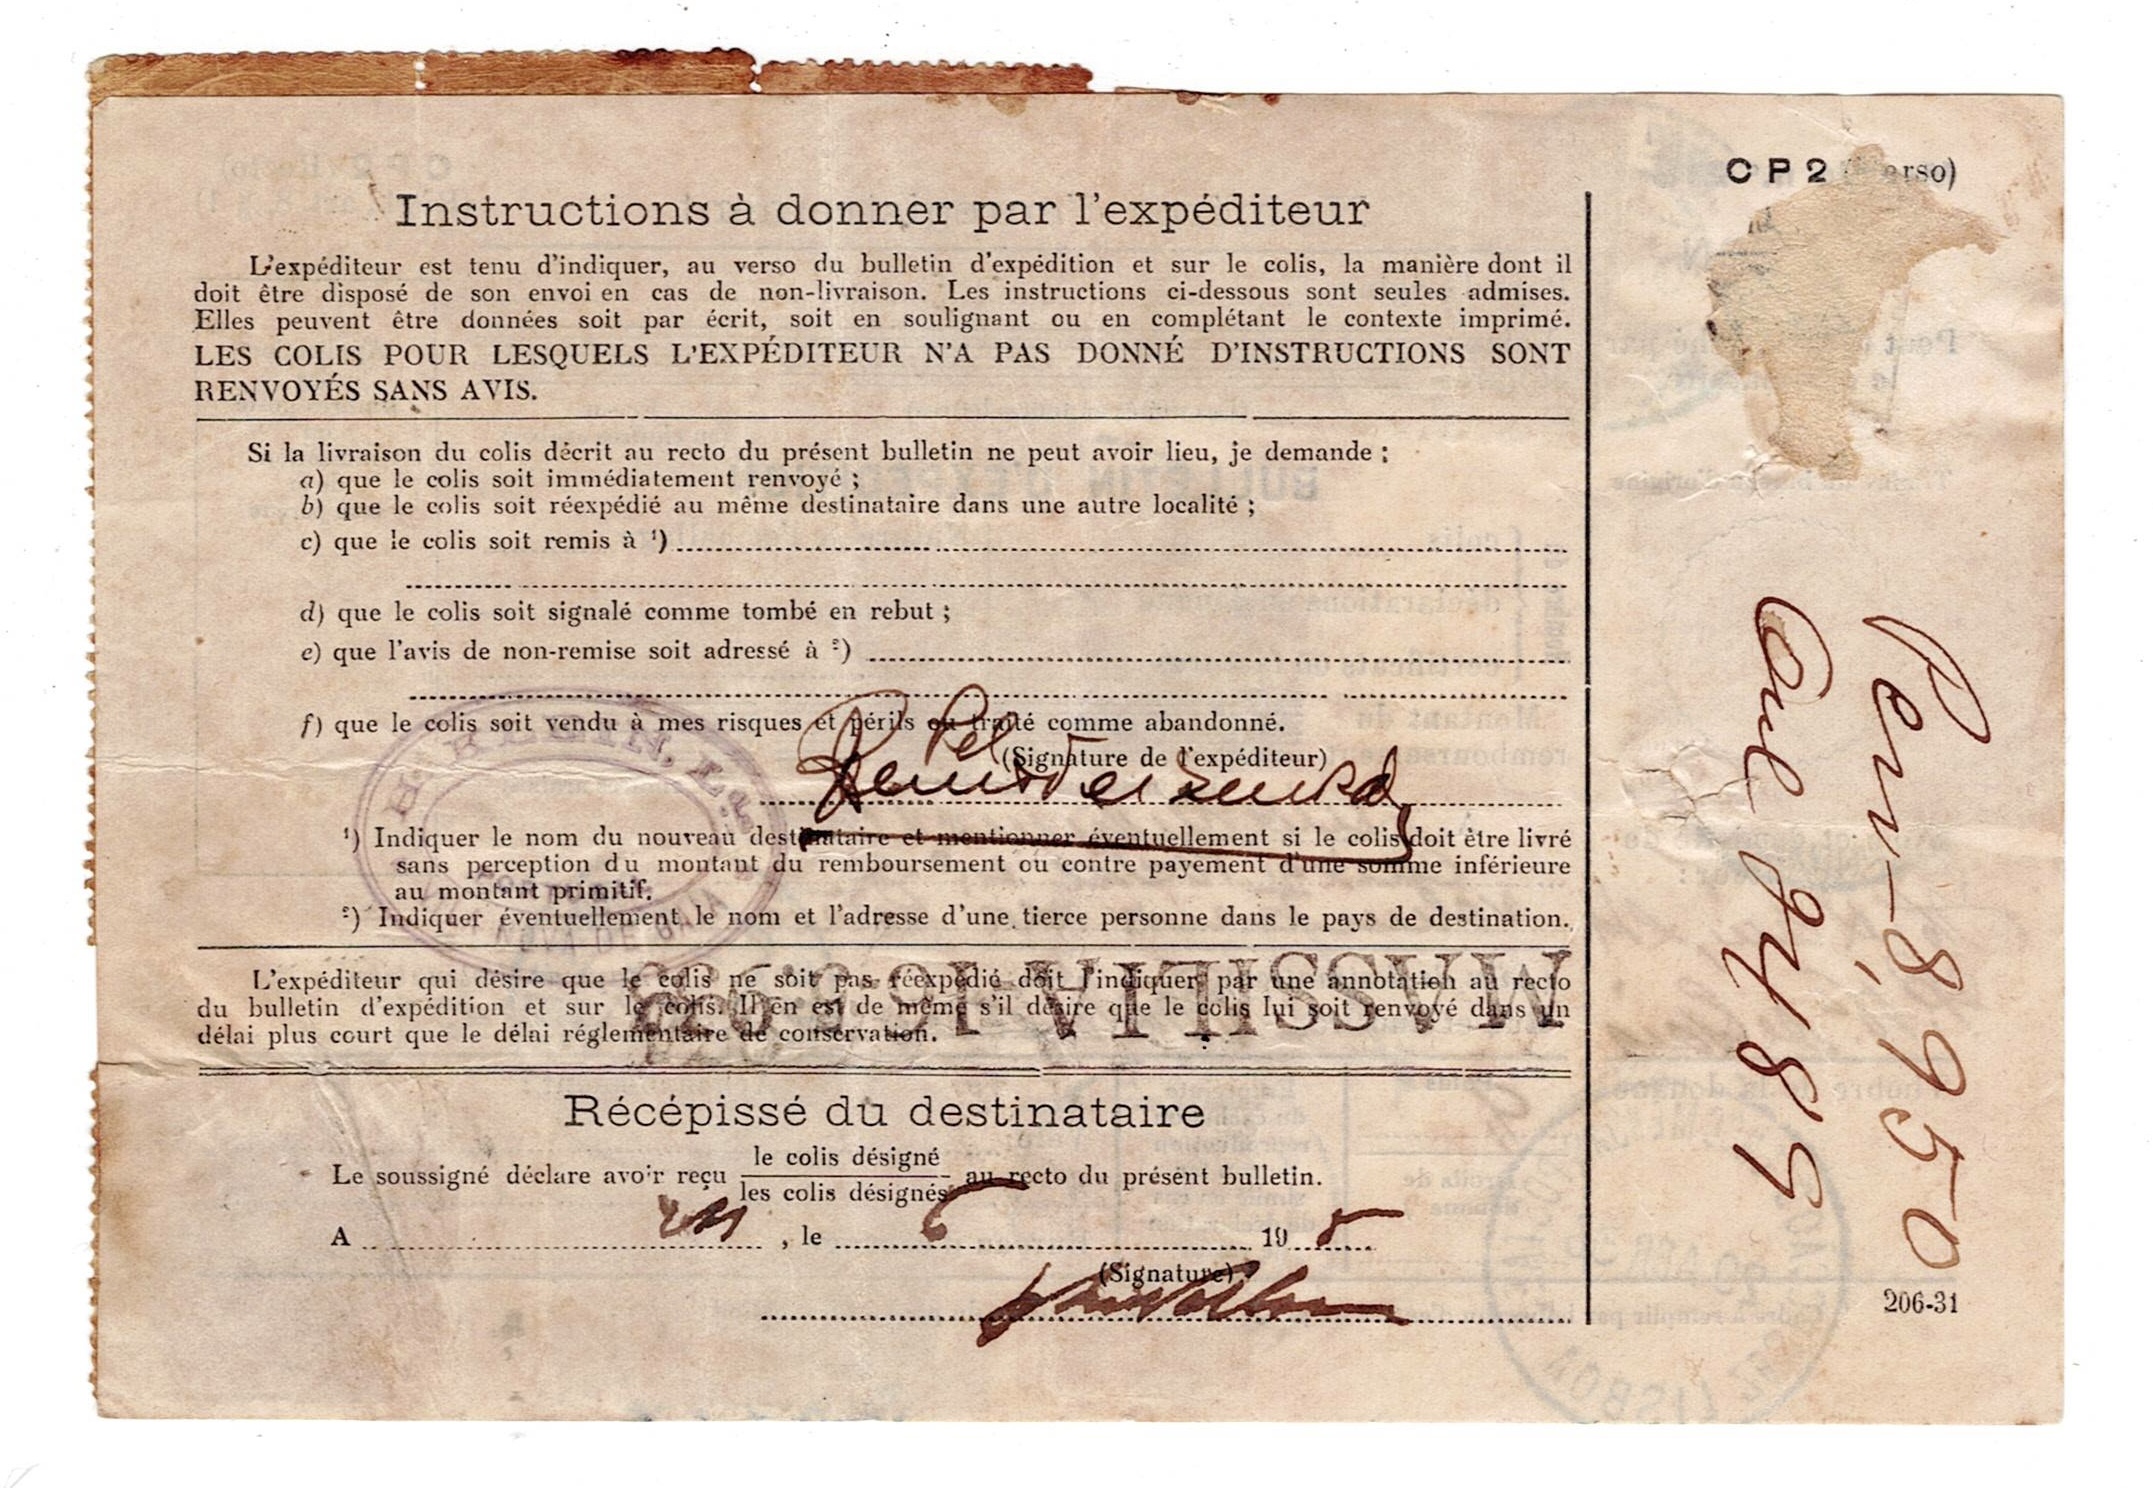 C P 2
Instructions à donner par l'expéditeur
L'expéditeur est tenu d'indiquer, au verso du bulletin d'expédition et sur le colis, la manière dont il
doit être disposé de son envoi en cas de non-livraison. Les instructions ci-dessous sont seules admises.
Elles peuvent être données soit par écrit, soit en soulignant ou en complétant le contexte imprimé.
LES COLIS POUR LESQUELS L'EXPÉDITEUR N'A PAS DONNÉ D'INSTRUCTIONS SONT
RENVOYÉS SANS AVIS.
Si la livraison du colis décrit au recto du présent bulletin ne peut avoir lieu, je demande :
a) que le colis soit immédiatement renvoyé ;
b) que le colis soit réexpédié au même destinataire dans une autre localité ;
c) que le colis soit remis à ¹)
d) que le colis soit signalé comme tombé en rebut ;
e) que l'avis de non-remise soit adressé à ²)
f) que le colis soit vendu à mes risques et périls ou traité comme abandonné.
(Signature de l'expéditeur)
¹) Indiquer le nom du nouveau destinataire et mentionner éventuellement si le colis doit être livré
sans perception du montant du remboursement ou contre payement d'une somme inférieure
au montant primitif.
²) Indiquer éventuellement le nom et l'adresse d'une tierce personne dans le pays de destination.
L'expéditeur qui désire que le colis ne soit pas réexpédié doit l'indiquer par une annotation au recto
du bulletin d'expédition et sur le colis. Il en est de même s'il désire que le colis lui soit renvoyé dans un
délai plus court que le délai réglementaire de conservation.
Récépissé du destinataire
Le soussigné déclare avoir reçu le colis désigné
les colis désignés au recto du présent bulletin.
A , le 6 19
(Signature)
206-31
8,950